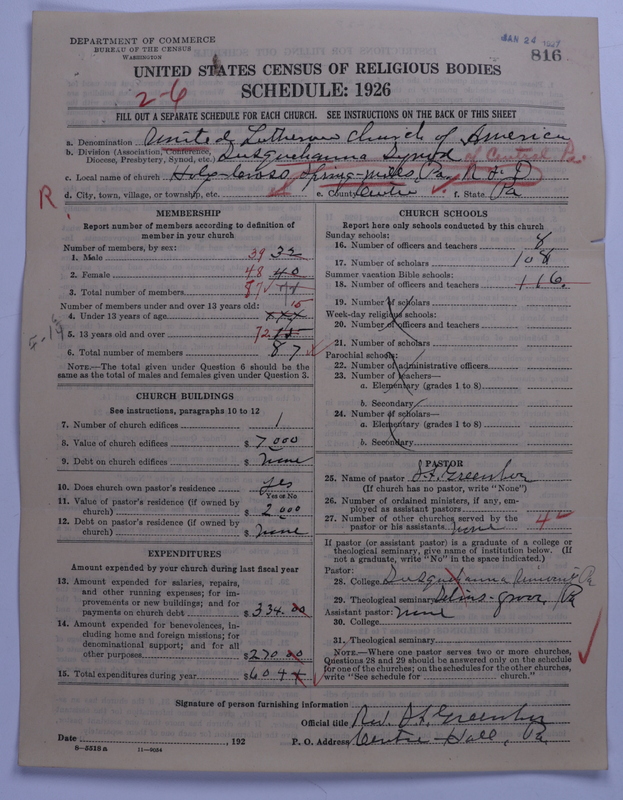 DEPARTMENT OF COMMERCE
BUREAU OF THE CENSUS
WASHINGTON
JAN 24 1927
816
UNITED STATES CENSUS OF RELIGIOUS BODIES
SCHEDULE: 1926
2-6
FILL OUT A SEPARATE SCHEDULE FOR EACH CHURCH. SEE INSTRUCTIONS ON THE BACK OF THIS SHEET
a. Denomination United Lutheran Church of America
b. Division (Association, Conference, Diocese, Presbytery, Synod, etc.) Susquehanna Synod of Central Pa.
c. Local name of church Holy-Cross, Spring-Mills, Pa. R.F.D
R
d. City, town, village, or township, etc. e. County Centre f. State Pa
MEMBERSHIP
Report number of members according to definition of
member in your church
Number of members, by sex:
1. Male 39 32
2. Female 48 40
3. Total number of members 87
Number of members under and over 13 years old:
4. Under 13 years of age 15 xxx
5. 13 years old and over 72
6. Total number of members 87
NOTE.—The total given under Question 6 should be
same as the total of males and females given under Question 3.
CHURCH BUILDINGS
See instructions, paragraphs 10 to 12
7. Number of church edifices 1
8. Value of church edifices $ 7000
9. Debt on church edifices $ None
10. Does church own pastor's residence yes
Yes or No
11. Value of pastor's residence (if owned by
church) $ 2000
12. Debt on pastor's residence (if owned by
church) $ None
EXPENDITURES
Amount expended by your church during last fiscal year
13. Amount expended for salaries, repairs,
and other running expenses; for im-
provements or new buildings; and for
payments on church debt $ 334.00
14. Amount expended for benevolences, in-
cluding home and foreign missions; for
denominational support; and for all
other purposes $ 270.00
15. Total expenditures during year $ 604
CHURCH SCHOOLS
Report here only schools conducted by this church
Sunday schools:
16. Number of officers and teachers 8
17. Number of scholars 108
Summer vacation Bible schools:
18. Number of officers and teachers 116.
19. Number of scholars
Week-day religious schools:
20. Number of officers and teachers
21. Number of scholars
Parochial schools:
22. Number of administrative officers
23. Number of teachers—
a. Elementary (grades 1 to 8)
b. Secondary
24. Number of scholars—
a. Elementary (grades 1 to 8)
b. Secondary
PASTOR
25. Name of pastor
(If church has no pastor, write "None")
26. Number of ordained ministers, if any, em-
ployed as assistant pastors
27. Number of other churches served by the
pastor or his assistants None 4
If pastor (or assistant pastor) is a graduate of a college or
theological seminary, give name of institution below. (If
not a graduate, write "No" in the space indicated.)
Pastor:
28. College Susquehanna University Pa
29. Theological seminary Selins-grove, Pa
Assistant pastor: None
30. College
31. Theological seminary
NOTE.—Where one pastor serves two or more churches,
Questions 28 and 29 should be answered only on the schedule
for one of the churches; on the schedules for the other churches,
write "See schedule for ____ church."
Signature of person furnishing information
Official title Rev.
Date , 192
P. O. Address Centre-Hall, Pa.
8—5518 a 11—9034